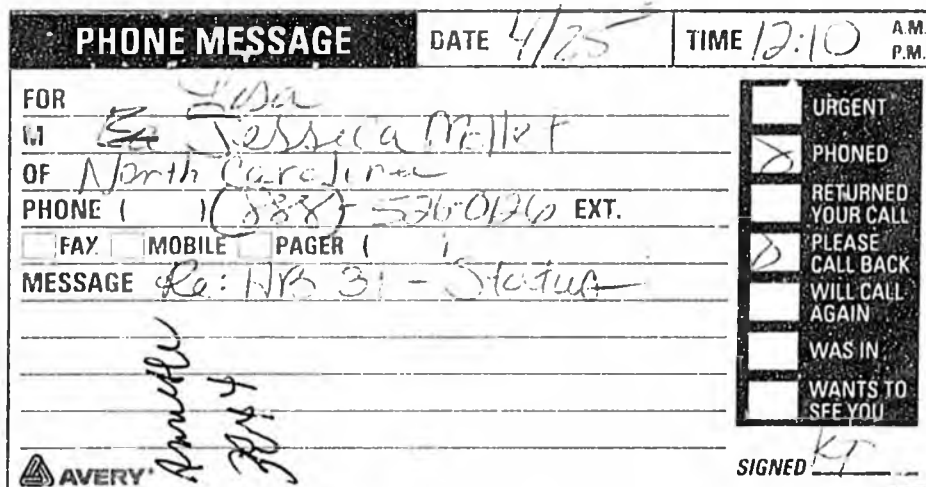 PHONE MESSAGE DATE 4/25 TIME 12:10 A.M. P.M.
FOR Lisa
M Jessica Miller
OF North Carolina
PHONE ( ) (888) - 526-0126 EXT.
FAX MOBILE PAGER ( )
MESSAGE Re: HB 31 - Status
URGENT
PHONED
RETURNED YOUR CALL
PLEASE CALL BACK
WILL CALL AGAIN
WAS IN
WANTS TO SEE YOU
SIGNED KT
Annette
3844
AVERY